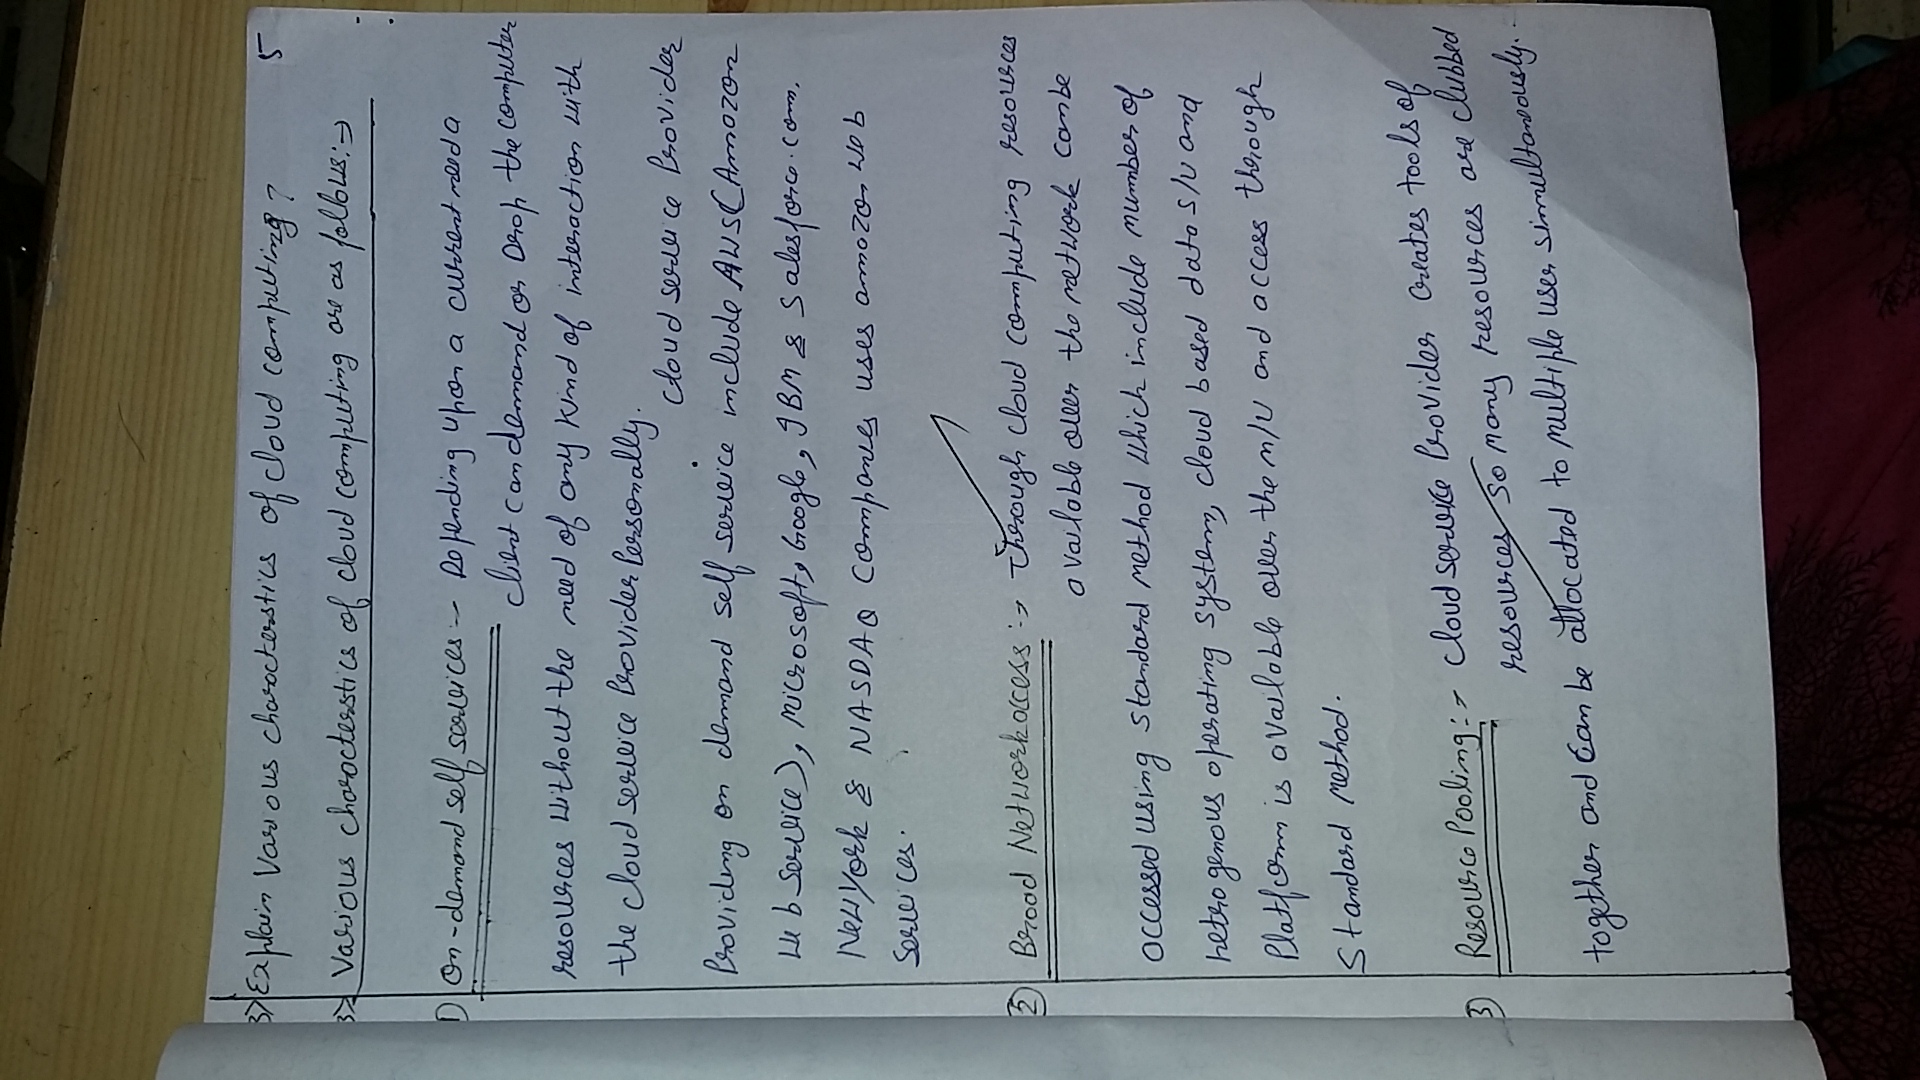 3> Explain Various charocterstics of cloud computing? 5
3> Various charocterstics of cloud computing are as follows:→
1) On-demand self services:- Depending upon a current need a
client can demand or Drop the computer
resources without the need of any kind of interaction with
the cloud service Provider Personally.
cloud service Provider
Providing on demand self service include AWS(Amazon
Web Service), Microsoft, Google, IBM & Salesforce.com.
Newyork & NASDAQ Companies uses amazon Web
Services.
2 Broad Network access :→ Through cloud computing resources
available over the network can be
accessed using standard method which include number of
hetrogenous operating system, cloud based data s/w and
Platform is available over the n/w and access through
Standard Method.
3) Resource Pooling :→ Cloud service Provider Creates tools of
resources so many resources are clubbed
together and can be allocated to multiple user simultaneously.